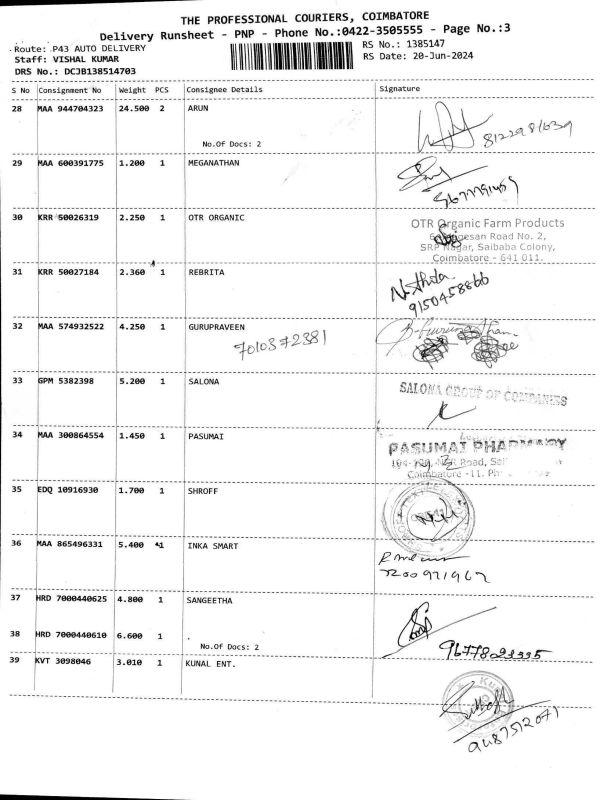 THE PROFESSIONAL COURIERS, COIMBATORE
Delivery Runsheet - PNP - Phone No.:0422-3505555 - Page No.:3
Route: P43 AUTO DELIVERY
RS No.: 1385147
Staff: VISHAL KUMAR
RS Date: 20-Jun-2024
DRS No.: DCJB138514703
S No Consignment No Weight PCS Consignee Details Signature
28 MAA 944704323 24.500 2 ARUN
No.Of Docs: 2
8122981639
29 MAA 600391775 1.200 1 MEGANATHAN
30 KRR 50026319 2.250 1 OTR ORGANIC
OTR Organic Farm Products
Road No. 2,
SRP Nagar, Saibaba Colony,
Coimbatore - 641 011.
31 KRR 50027184 2.360 1 REBRITA
9150458866
32 MAA 574932522 4.250 1 GURUPRAVEEN
7010372381
33 GPM 5382398 5.200 1 SALONA
SALONA GROUP OF COMPANIES
34 MAA 300864554 1.450 1 PASUMAI
PASUMAI PHARMACY
Road,
Coimbatore -11.
35 EDQ 10916930 1.700 1 SHROFF
36 MAA 865496331 5.400 1 INKA SMART
7200971967
37 HRD 7000440625 4.800 1 SANGEETHA
38 HRD 7000440610 6.600 1
No.Of Docs: 2
39 KVT 3098046 3.010 1 KUNAL ENT.
9487512071